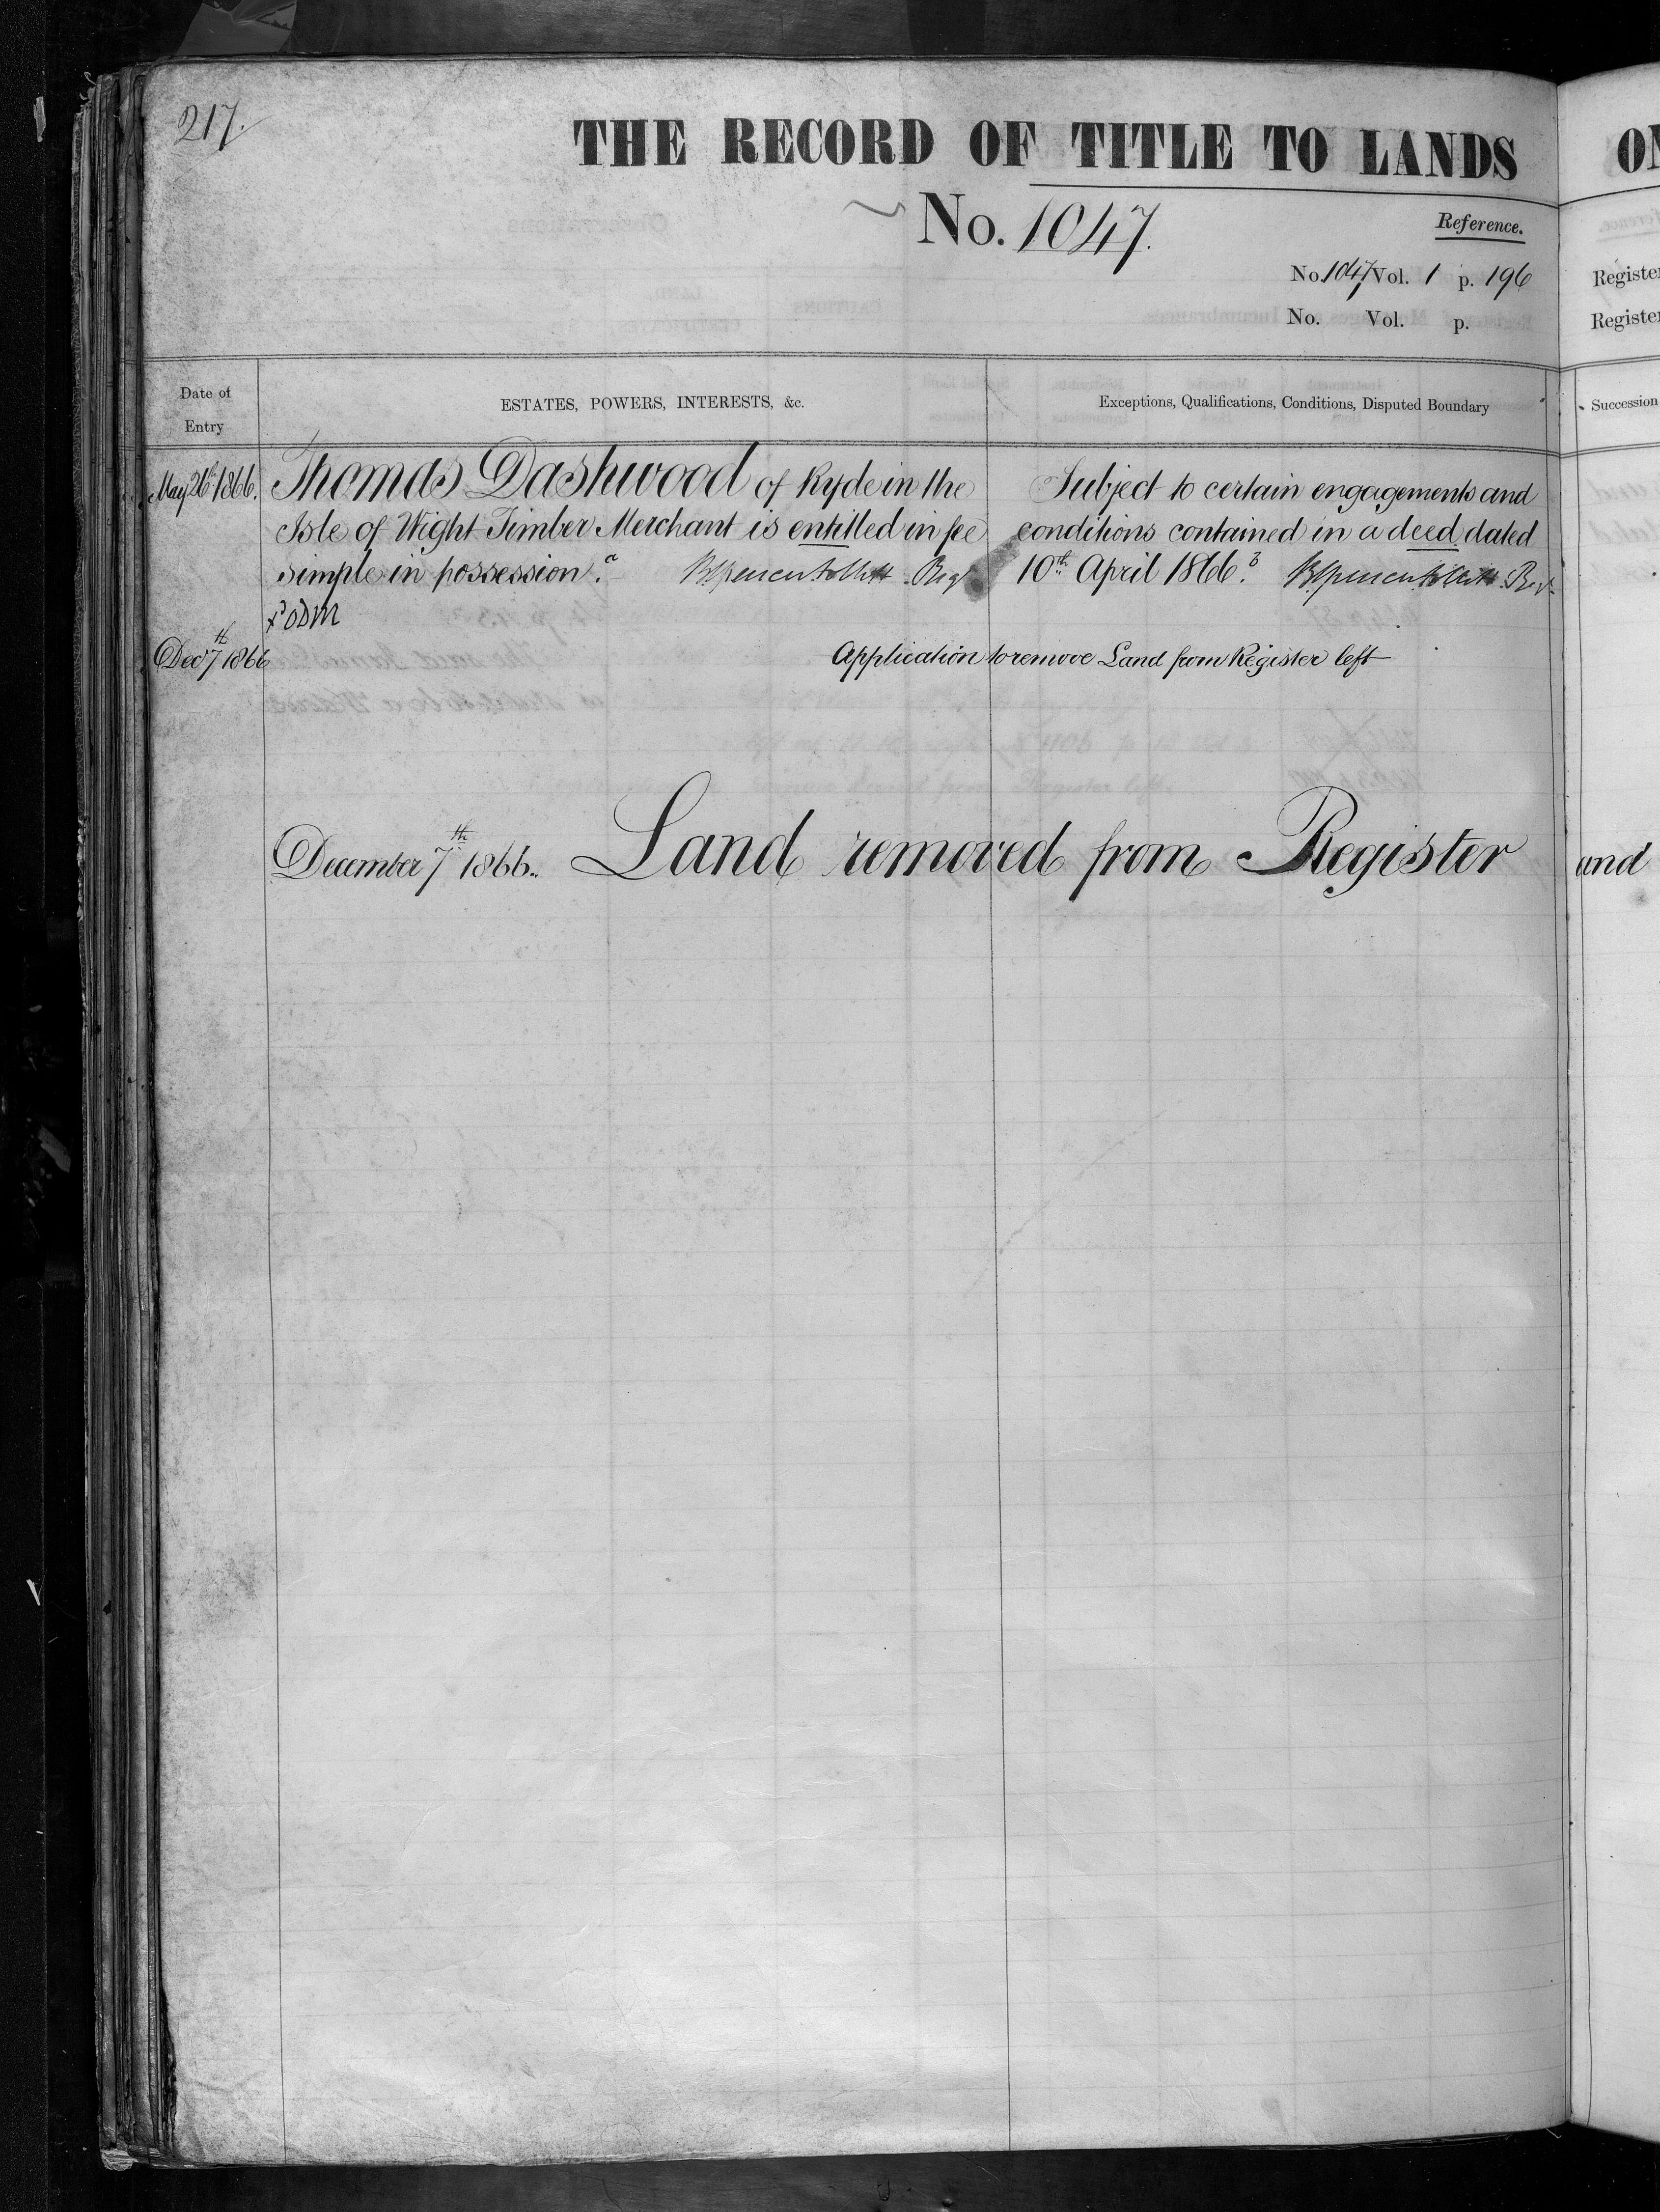 217.
THE RECORD OF TITLE TO LANDS
No. 1047.
Reference.
No. 1047 Vol. 1 p. 196
No. Vol. p.
Register
Register
Date of
Entry
ESTATES, POWERS, INTERESTS, &c.
Exceptions, Qualifications, Conditions, Disputed Boundary
Succession
May 26th 1866.
Thomas Dashwood of Ryde in the
Isle of Wight Timber Merchant is entitled in fee
simple in possession. a
Subject to certain engagements and
conditions contained in a deed dated
10th April 1866. 3
Decr 7th 1866
Application to remove Land from Register left
December 7th 1866. Land removed from Register and